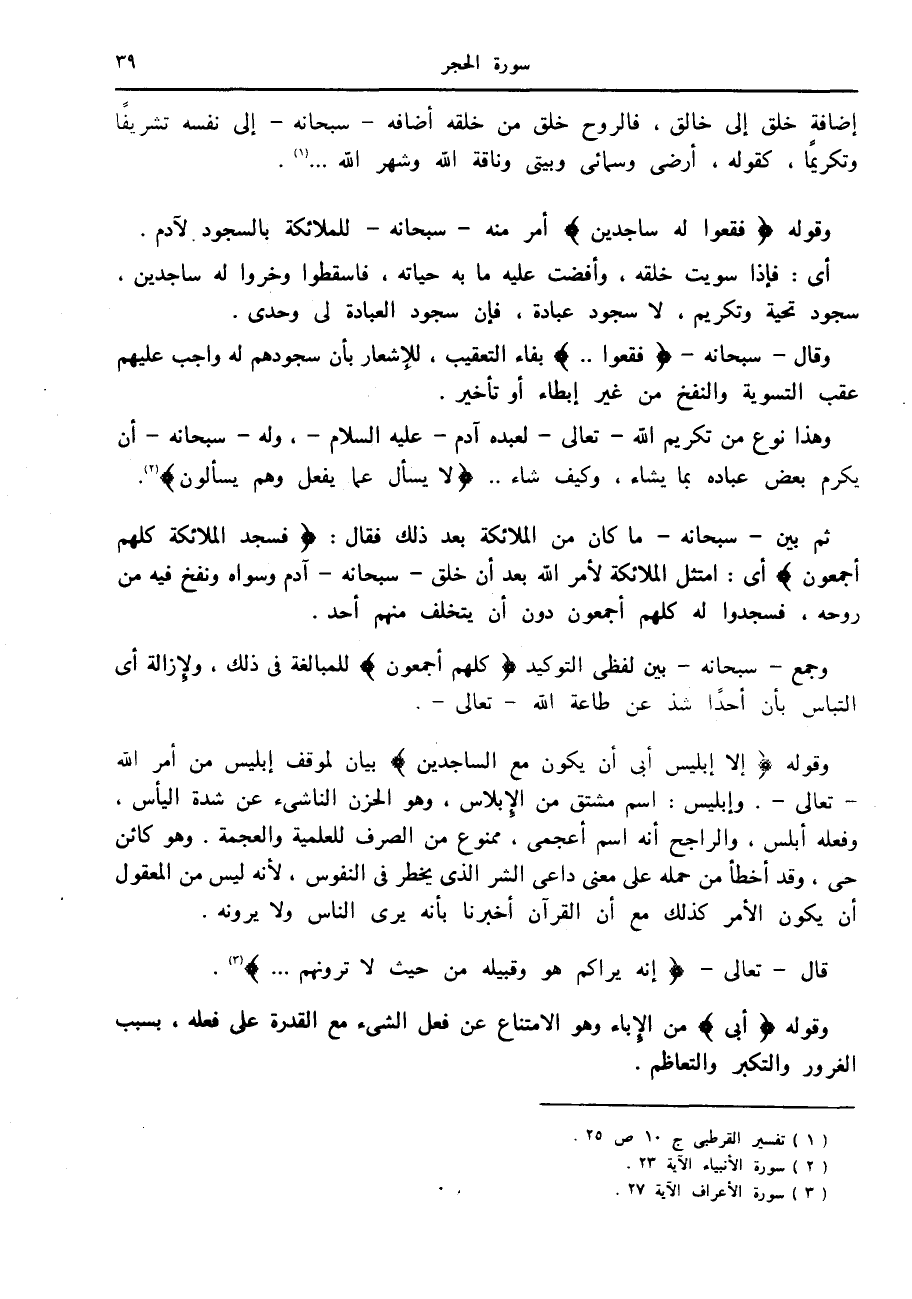 سورة الحجر ٣٩
إضافة خلق إلى خالق ، فالروح خلق من خلقه أضافه – سبحانه – إلى نفسه تشريفًا
وتكريمًا ، كقوله ، أرضى وسمائى وبيتى وناقة الله وشهر الله ...(١) .
وقوله ﴿ فقعوا له ساجدين ﴾ أمر منه – سبحانه – للملائكة بالسجود لآدم .
أى : فإذا سويت خلقه ، وأفضت عليه ما به حياته ، فاسقطوا وخروا له ساجدين ،
سجود تحية وتكريم ، لا سجود عبادة ، فإن سجود العبادة لى وحدى .
وقال – سبحانه – ﴿ فقعوا .. ﴾ بفاء التعقيب ، للإشعار بأن سجودهم له واجب عليهم
عقب التسوية والنفخ من غير إبطاء أو تأخير .
وهذا نوع من تكريم الله – تعالى – لعبده آدم – عليه السلام – ، وله – سبحانه – أن
يكرم بعض عباده بما يشاء ، وكيف شاء .. ﴿لا يسأل عما يفعل وهم يسألون﴾(٢).
ثم بين – سبحانه – ما كان من الملائكة بعد ذلك فقال : ﴿ فسجد الملائكة كلهم
أجمعون ﴾ أى : امتثل الملائكة لأمر الله بعد أن خلق – سبحانه – آدم وسواه ونفخ فيه من
روحه ، فسجدوا له كلهم أجمعون دون أن يتخلف منهم أحد .
وجمع – سبحانه – بين لفظى التوكيد ﴿ كلهم أجمعون ﴾ للمبالغة فى ذلك ، ولإزالة أى
التباس بأن أحدًا شذ عن طاعة الله – تعالى – .
وقوله ﴿ إلا إبليس أبى أن يكون مع الساجدين ﴾ بيان لموقف إبليس من أمر الله
– تعالى – . وإبليس : اسم مشتق من الإبلاس ، وهو الحزن الناشىء عن شدة اليأس ،
وفعله أبلس ، والراجح أنه اسم أعجمى ، ممنوع من الصرف للعلمية والعجمة . وهو كائن
حى ، وقد أخطأ من حمله على معنى داعى الشر الذى يخطر فى النفوس ، لأنه ليس من المعقول
أن يكون الأمر كذلك مع أن القرآن أخبرنا بأنه يرى الناس ولا يرونه .
قال – تعالى – ﴿ إنه يراكم هو وقبيله من حيث لا ترونهم ... ﴾(٣) .
وقوله ﴿ أبى ﴾ من الإباء وهو الامتناع عن فعل الشىء مع القدرة على فعله ، بسبب
الغرور والتكبر والتعاظم .
( ١ ) تفسير القرطبى ج ١٠ ص ٢٥ .
( ٢ ) سورة الأنبياء الآية ٢٣ .
( ٣ ) سورة الأعراف الآية ٢٧ .